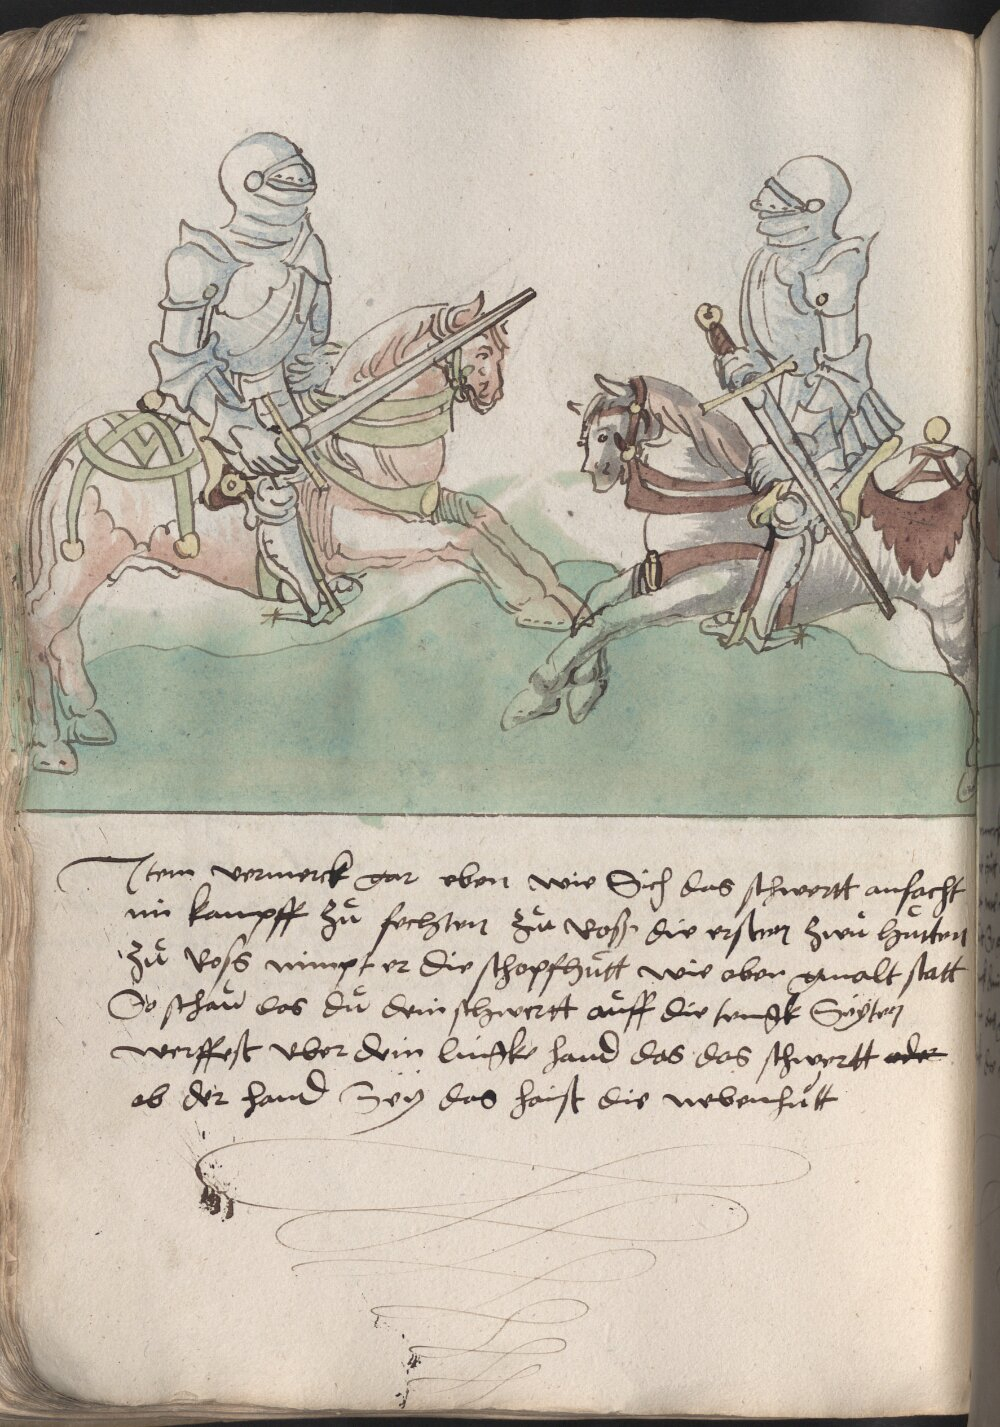 Item vermerck gar eben wie Sich das schwertt anfacht
im kampff zů fechten zů Ross die ersten zwů hůtten
zů Ross nimpt er die schopfhůtt wie oben gmalt statt
So schaů das dů dein schwertt aůff die lengk Seÿten
werffest vber dein lingke hand das das schwertt oder
ob der hand Seÿ das haist die nebenhůtt